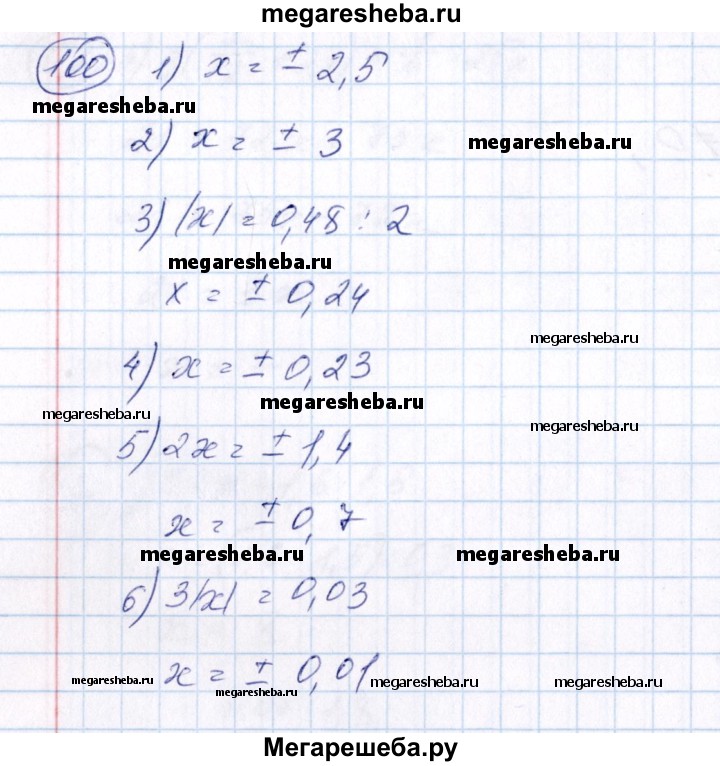 megaresheba.ru
100 1) x = ± 2,5
megaresheba.ru
2) x = ± 3
megaresheba.ru
3) |x| = 0,48 : 2
megaresheba.ru
x = ± 0,24
megaresheba.ru
4) x = ± 0,23
megaresheba.ru
megaresheba.ru
megaresheba.ru
5) 2x = ± 1,4
x = ± 0,7
megaresheba.ru megaresheba.ru
6) 3|x| = 0,03
x = ± 0,01
megaresheba.ru megaresheba.ru megaresheba.ru megaresheba.ru
Мегарешеба.ру